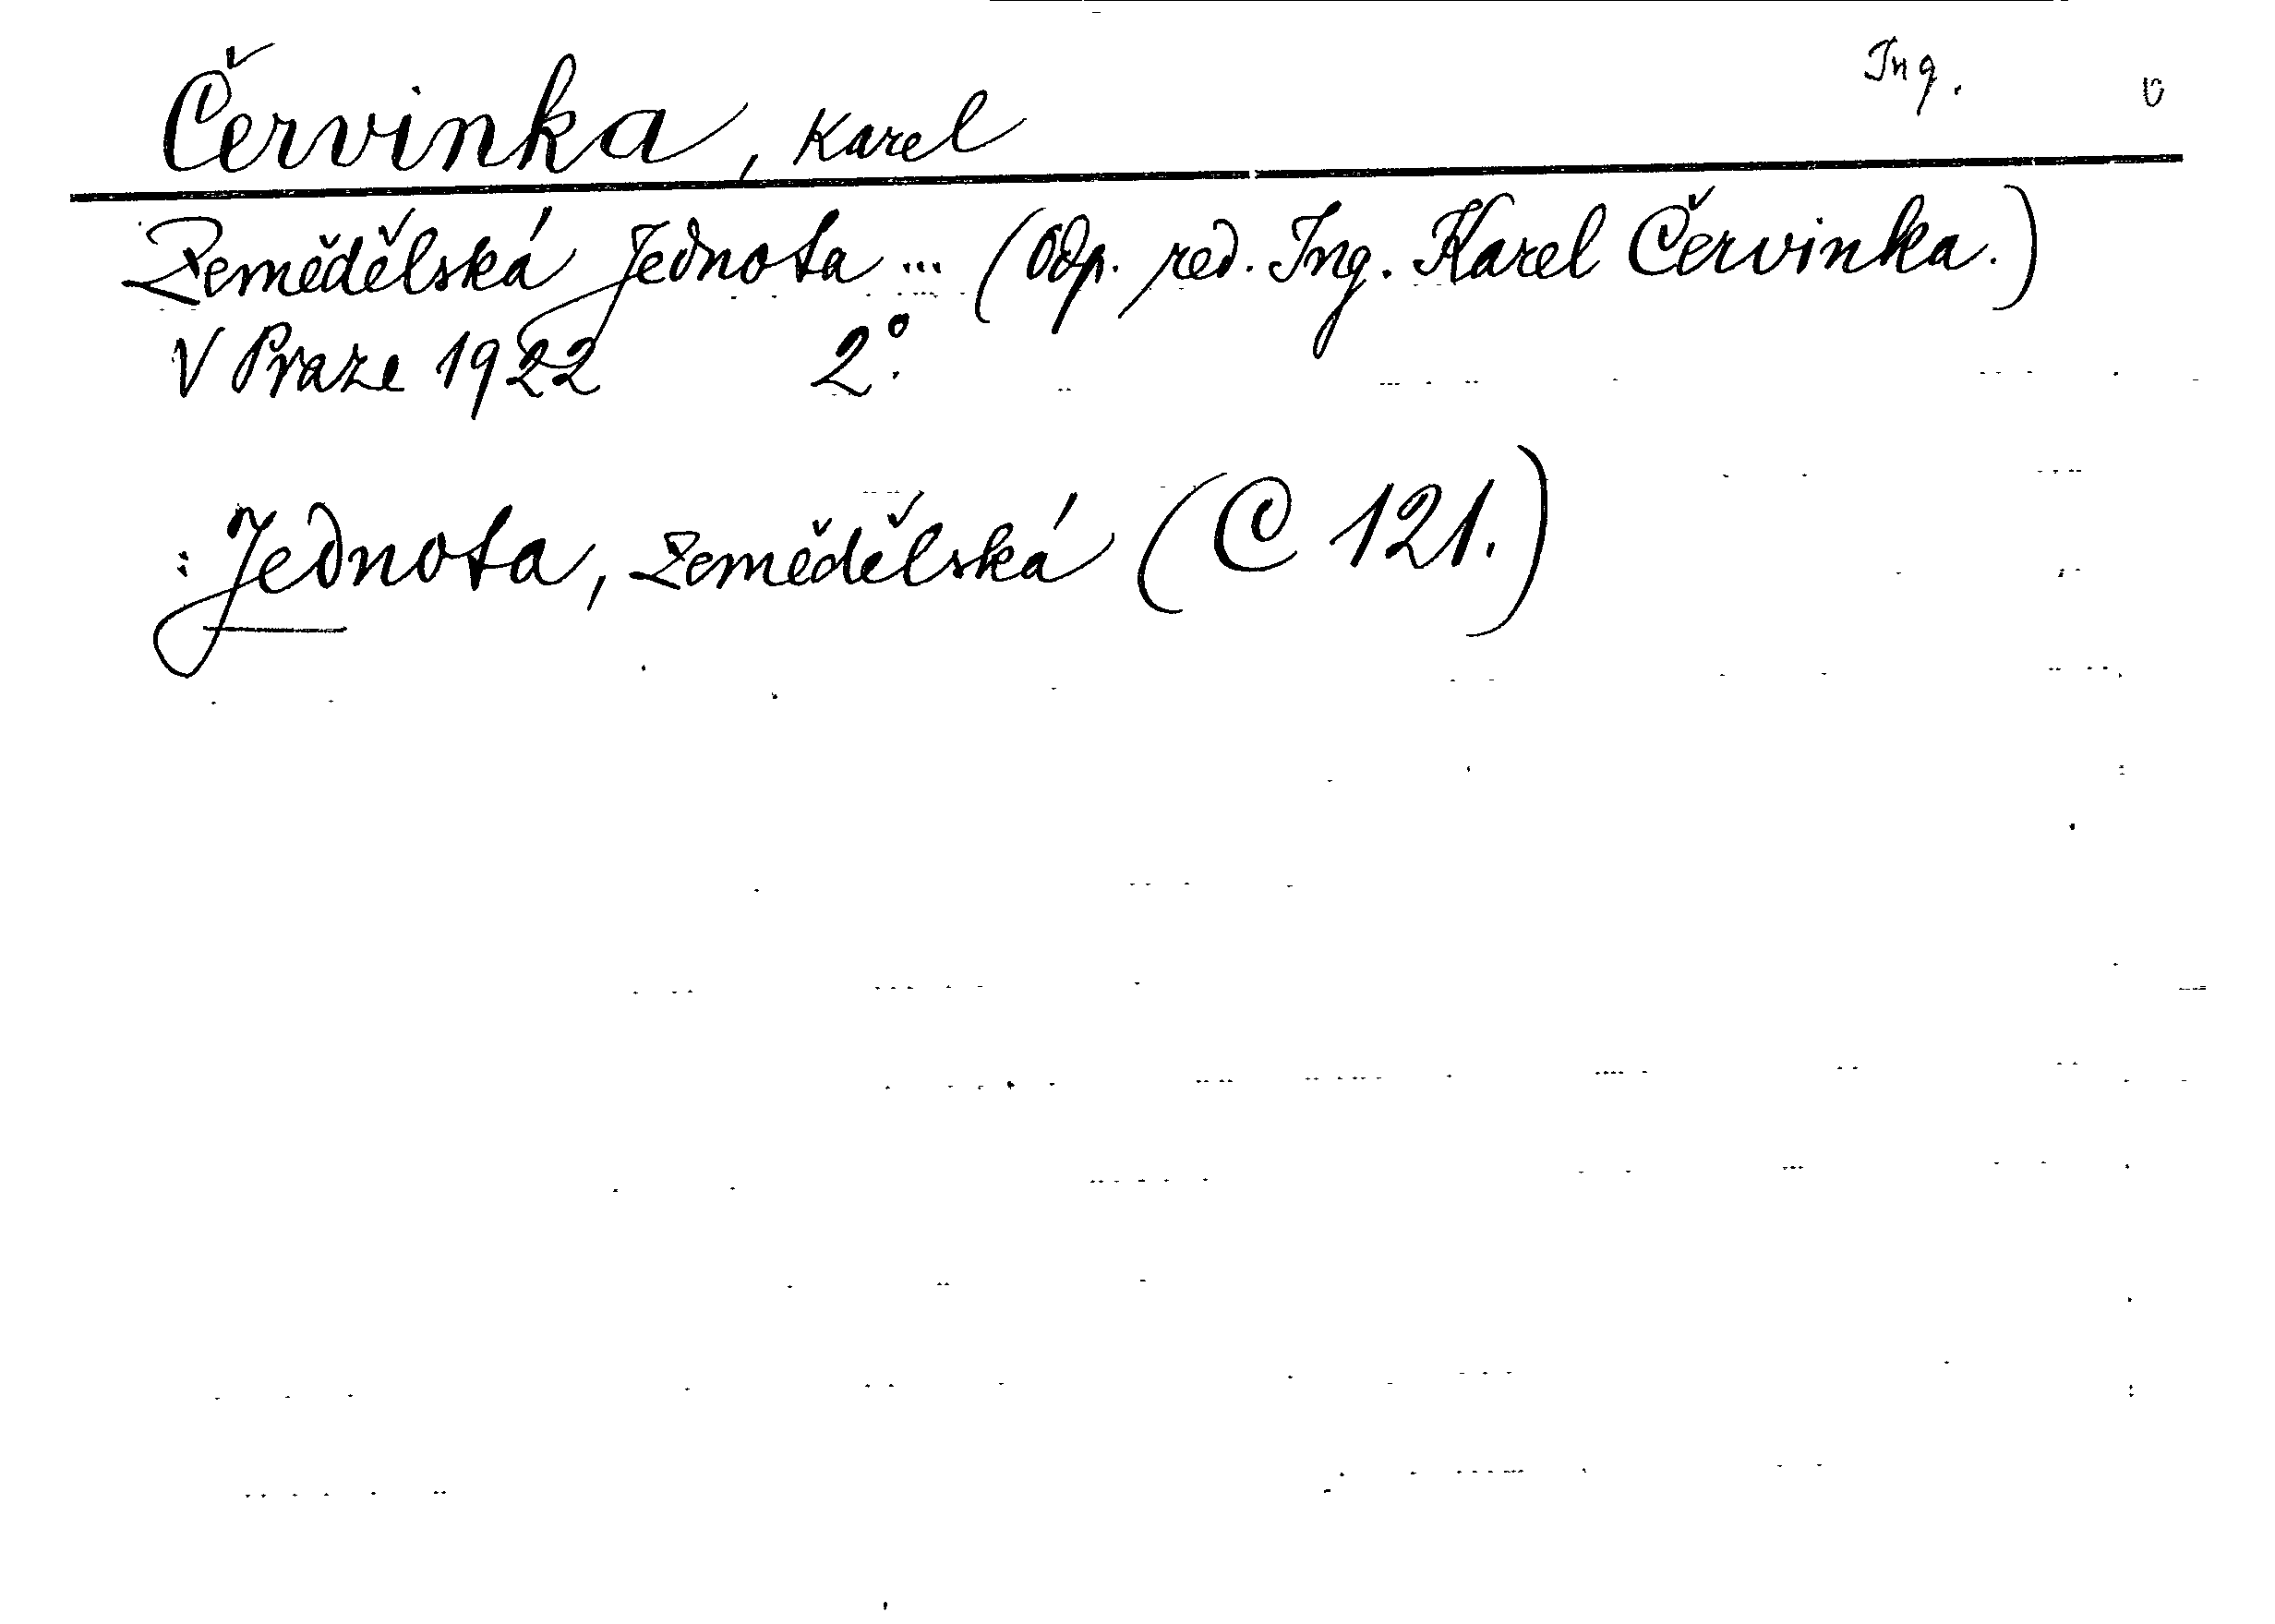 Červinka, Karel Ing.
Zemědělská Jednota ... (Odp. red. Ing. Karel Červinka.)
V Praze 1922 2°.
: Jednota, Zemědělská (C 121.)